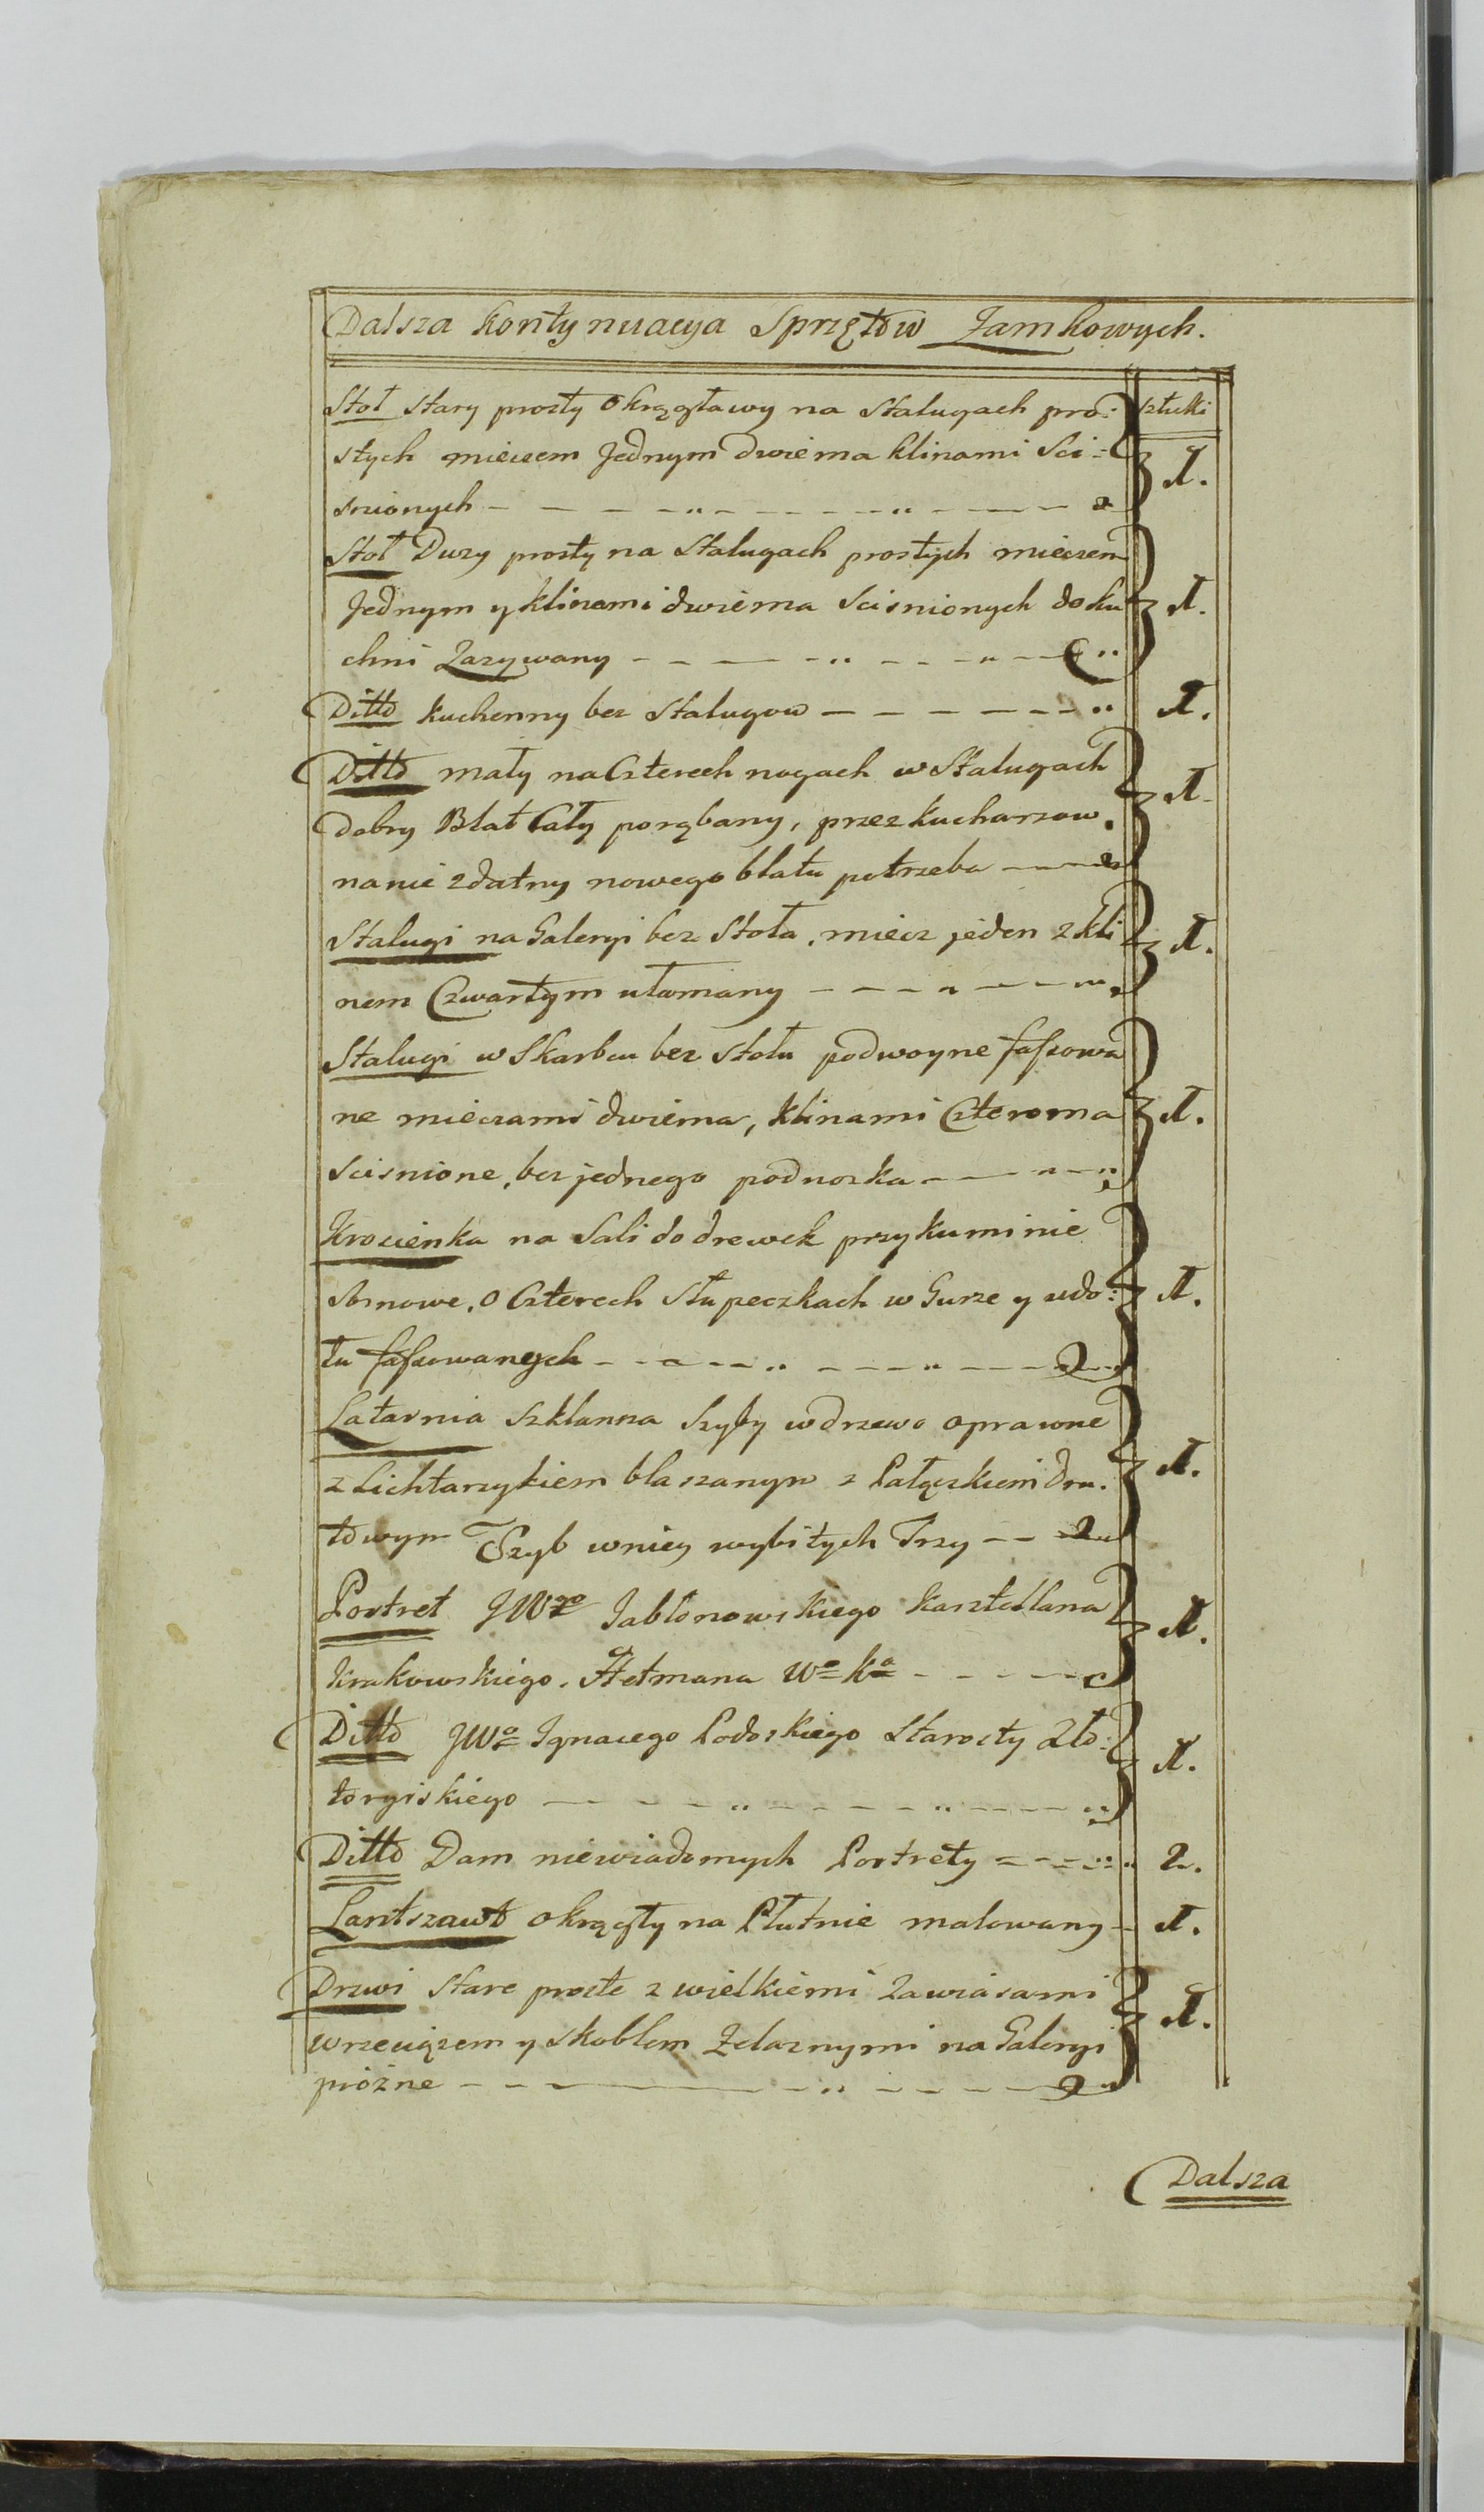 Dalsza kontynuacya Sprzętow Zamkowych.
Stoł stary prosty okrągławy na Stalugach pro: sztuki
stych mieczem Jednym dwiema klinami Sci:
snionych 1.
Stoł Duży prosty na Stalugach prostych mieczem
Jednym y klinami dwiema scisnionych do ku 1.
chni Zazywany
Ditto kuchenny bez Stalugow 1.
Ditto mały na Czterech nogach w Stalugach 1.
dobry Blat Cały porąbany, przez kucharzow.
na nic zdatny nowego blatu potrzeba
Stalugi na Galeryi bez Stoła, miecz jeden z kli 1.
nem Czwartym ułamany
Stalugi w Skarbcu bez Stołu podwoyne fassowa
ne mieczami dwiema, klinami Czteroma 1.
scisnione, bez jednego podnozka
Krosienka na Sali do drewek przy kuminie
sosnowe, o Czterech słupeczkach w Gurze y udo: 1.
łu fassowanych
Latarnia szklanna Szyby w drzewo oprawne
z Lichtarzykiem blaszanym z Pałączkiem dru. 1.
towym Szyb w niey wybitych Trzy
Portret JWgo Jabłonowskiego kasztellana 1.
krakowskiego. Hetmana Wo ko
Ditto JWo Ignacego Podoskiego Starosty Zło: 1.
toryiskiego
Ditto Dam niewiadomych Portrety 2.
Lantszawt okrągły na Płutnie malowany 1.
Drzwi stare proste z wielkiemi zawiasami
wrzeciązem y skoblem żelaznymi na Galeryi 1.
prózne
Dalsza